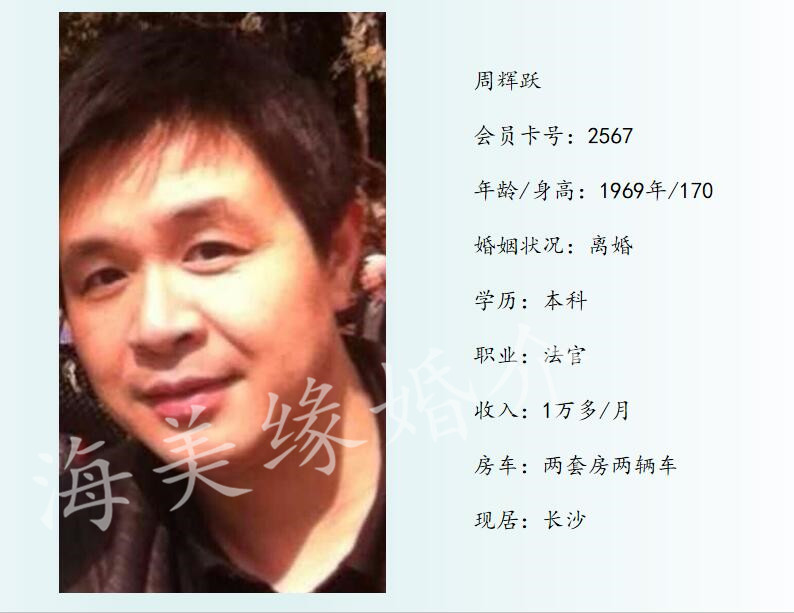 周辉跃
会员卡号：2567
年龄/身高：1969年/170
婚姻状况：离婚
学历：本科
职业：法官
收入：1万多/月
房车：两套房两辆车
现居：长沙
海美缘婚介